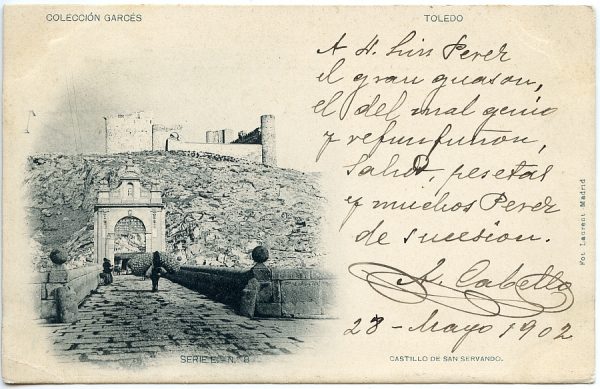 COLECCIÓN GARCÉS
TOLEDO
A H. Luis Perez
el gran guason,
el del mal genio
y refunfuñon,
Salud, pesetas
y muchos Perez
de sucesion.
A. Cabello
28 - Mayo 1902
Fot Laurent Madrid
SERIE E. N. 8
CASTILLO DE SAN SERVANDO.